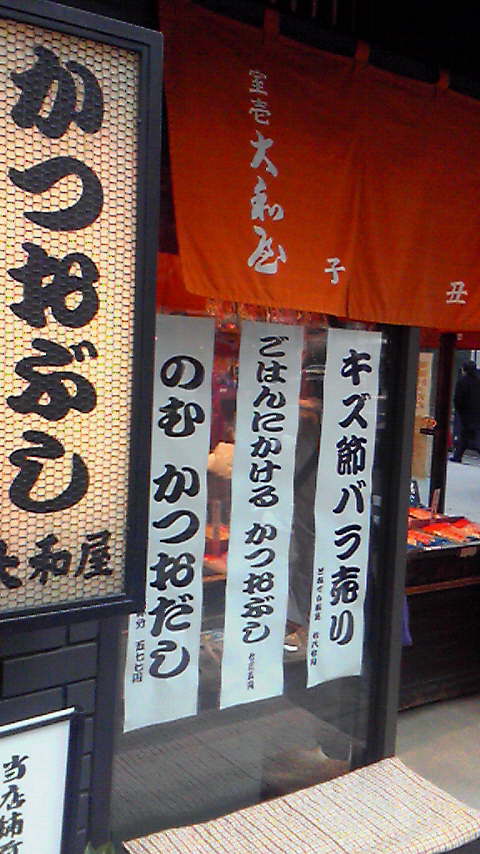 かつおぶし
大和屋
室壱
大和屋
子
丑
キズ節バラ売り
ごはんにかける かつおぶし
のむ かつおだし
五七七円
当店